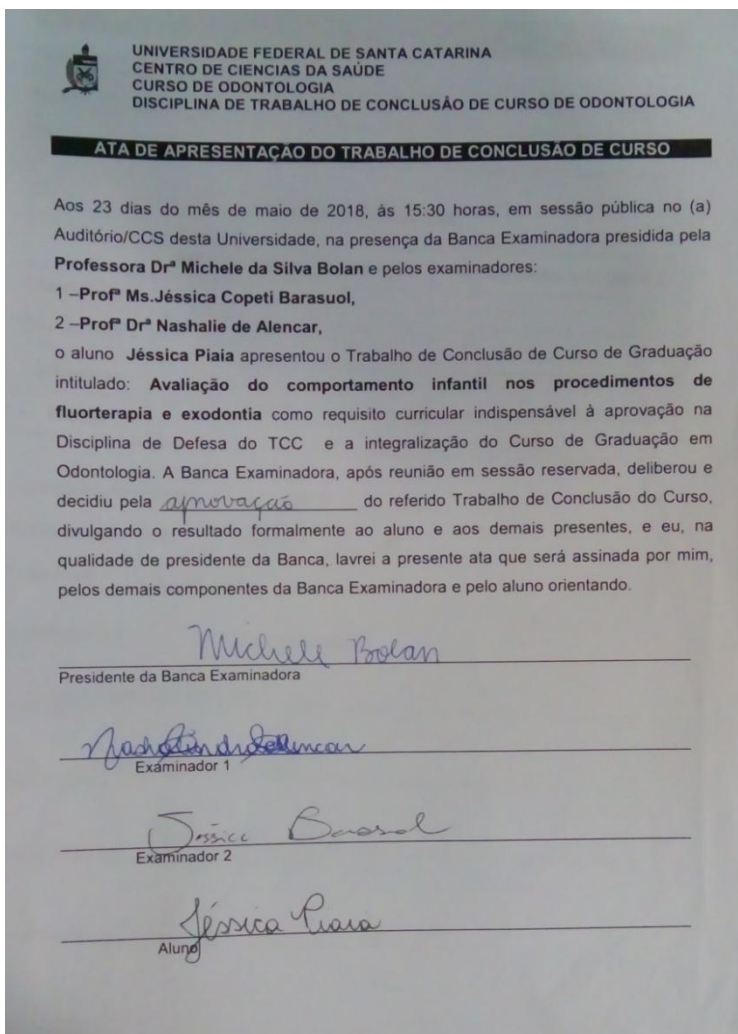 UNIVERSIDADE FEDERAL DE SANTA CATARINA
CENTRO DE CIENCIAS DA SAÚDE
CURSO DE ODONTOLOGIA
DISCIPLINA DE TRABALHO DE CONCLUSÃO DE CURSO DE ODONTOLOGIA
ATA DE APRESENTAÇÃO DO TRABALHO DE CONCLUSÃO DE CURSO
Aos 23 dias do mês de maio de 2018, às 15:30 horas, em sessão pública no (a)
Auditório/CCS desta Universidade, na presença da Banca Examinadora presidida pela
Professora Drª Michele da Silva Bolan e pelos examinadores:
1 –Profª Ms.Jéssica Copeti Barasuol,
2 –Profª Drª Nashalie de Alencar,
o aluno Jéssica Piaia apresentou o Trabalho de Conclusão de Curso de Graduação
intitulado: Avaliação do comportamento infantil nos procedimentos de
fluorterapia e exodontia como requisito curricular indispensável à aprovação na
Disciplina de Defesa do TCC e a integralização do Curso de Graduação em
Odontologia. A Banca Examinadora, após reunião em sessão reservada, deliberou e
decidiu pela aprovação do referido Trabalho de Conclusão do Curso,
divulgando o resultado formalmente ao aluno e aos demais presentes, e eu, na
qualidade de presidente da Banca, lavrei a presente ata que será assinada por mim,
pelos demais componentes da Banca Examinadora e pelo aluno orientando.
Michele Bolan
Presidente da Banca Examinadora
Examinador 1
Jéssica Barasuol
Examinador 2
Jéssica Piaia
Aluno